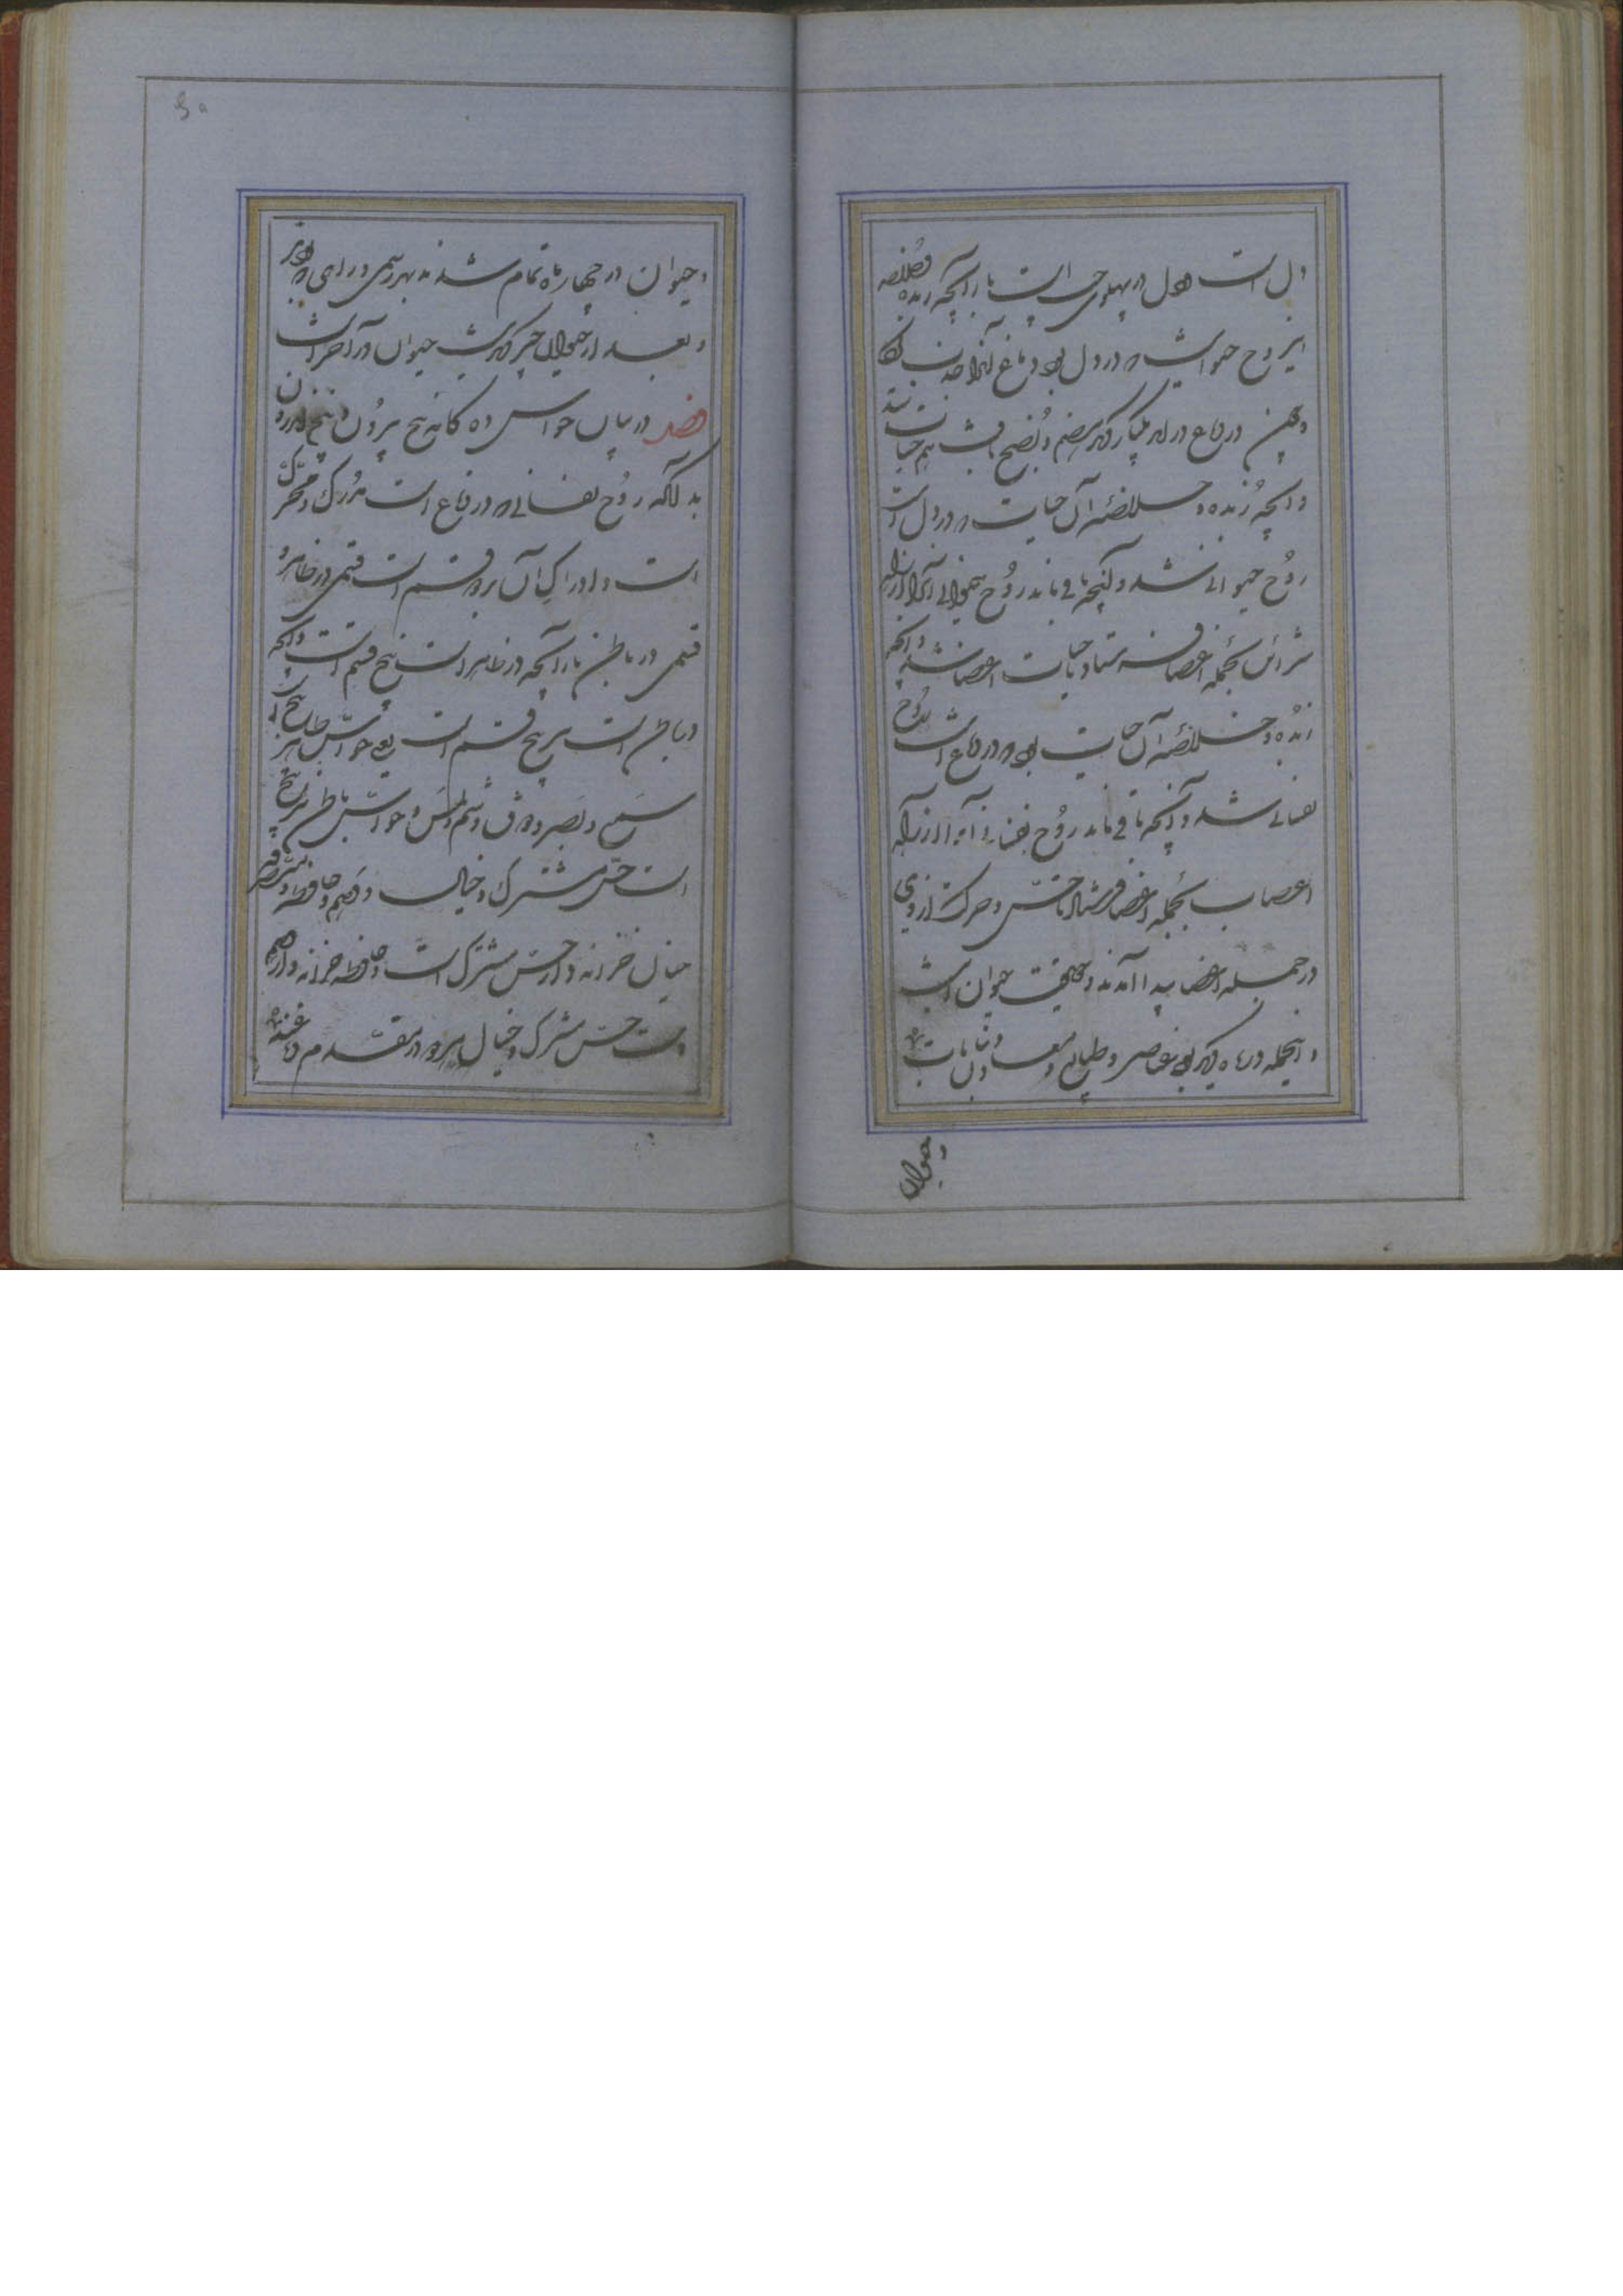 دل است و دل در پهلوی چپ است باز آنچه زبده و خلاصه
این روح حیوانیست که در دل بود دماغ آنرا جذب کرد
و چون در دماغ در آمد یکبار دیگر هضم و نضج یافت هم حیات شد
و آنچه زبده و خلاصهٔ آن حیات که در دل است
روح حیوانی شد و آنچه باقی ماند روح حیوانی آنرا از راه
شرائن بجمله اعضا فرستاد تا حیات اعضا شد و آنچه
زبده و خلاصهٔ آن حیات بود که در دماغ است روح
نفسانی شد و آنچه باقی ماند روح نفسانی آنرا از راه
اعصاب بجمله اعضا فرستاد تا حس و حرکت ارادی
در جمله اعضا پیدا آمدند و حقیقت حیوان اینست
و اینجمله در ماه دیگر بود عناصر و طبایع و معادن و نباتات
حیوان
و حیوان در چهار ماه تمام شدند به هر یکی در ماهی
و بعد از حیوان چیز دیگر نیست حیوان در آخر است
فصل در بیان حواس ده گانه پنج بیرون و پنج اندرون
بدانکه روح نفسانی که در دماغ است مدرک و محرک
است و ادراک آن بر دو قسم است قسمی در ظاهر و
قسمی در باطن باز آنچه در ظاهر است پنج قسم است و آنچه
در باطن است بر پنج قسم است یعنی حواس ظاهر پنج است
سمع و بصر و ذوق و شم و لمس و حواس باطن نیز پنج
است حس مشترک و خیال و وهم و حافظه و متصرفه
خیال خزانه دار حس مشترک است و حافظه خزانه دار وهم
است حس مشترک و خیال هر دو در مقدم دماغند